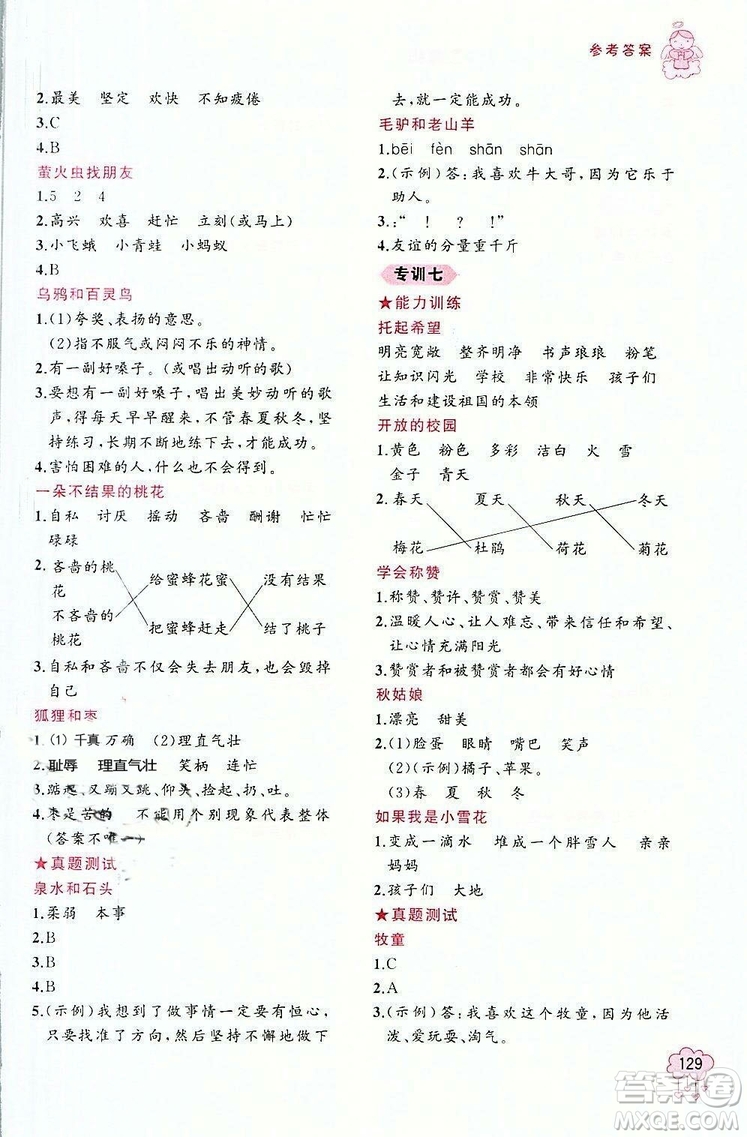 参考答案
2.最美 坚定 欢快 不知疲倦
3.C
4.B
萤火虫找朋友
1.5 2 4
2.高兴 欢喜 赶忙 立刻(或马上)
3.小飞蛾 小青蛙 小蚂蚁
4.B
乌鸦和百灵鸟
1.(1)夸奖、表扬的意思。
(2)指不服气或闷闷不乐的神情。
2.有一副好嗓子。(或唱出动听的歌)
3.要想有一副好嗓子,唱出美妙动听的歌
声,得每天早早醒来,不管春夏秋冬,坚
持练习,长期不断地练下去,才能成功。
4.害怕困难的人,什么也不会得到。
一朵不结果的桃花
1.自私 讨厌 摇动 吝啬 酬谢 忙忙
碌碌
2.吝啬的桃
花
给蜜蜂花蜜 没有结果
不吝啬的
桃花
把蜜蜂赶走 结了桃子
3.自私和吝啬不仅会失去朋友,也会毁掉
自己
狐狸和枣
1.(1)千真万确 (2)理直气壮
2.耻辱 理直气壮 笑柄 连忙
3.踮、又蹦又跳、仰头、捡起、扔、吐。
4.枣是苦的 不能用个别现象代表整体
(答案不唯一)
★真题测试
泉水和石头
1.柔弱 本事
2.B
3.B
4.B
5.(示例)我想到了做事情一定要有恒心,
只要找准了方向,然后坚持不懈地做下
去,就一定能成功。
毛驴和老山羊
1.bēi fèn shān shān
2.(示例)答:我喜欢牛大哥,因为它乐于
助人。
3.:“ ! ? !”
4.友谊的分量重千斤
专训七
★能力训练
托起希望
明亮宽敞 整齐明净 书声琅琅 粉笔
让知识闪光 学校 非常快乐 孩子们
生活和建设祖国的本领
开放的校园
1.黄色 粉色 多彩 洁白 火 雪
金子 青天
2.春天 夏天 秋天 冬天
梅花 杜鹃 荷花 菊花
学会称赞
1.称赞、赞许、赞赏、赞美
2.温暖人心、让人难忘、带来信任和希望、
让心情充满阳光
3.赞赏者和被赞赏者都会有好心情
秋姑娘
1.漂亮 甜美
2.(1)脸蛋 眼睛 嘴巴 笑声
(2)(示例)橘子、苹果。
(3)春 夏 秋 冬
如果我是小雪花
1.变成一滴水 堆成一个胖雪人 亲亲
妈妈
2.孩子们 大地
★真题测试
牧童
1.C
2.A
3.(示例)答:我喜欢这个牧童,因为他活
泼、爱玩耍、淘气。
129
答案圈
MXQE.COM